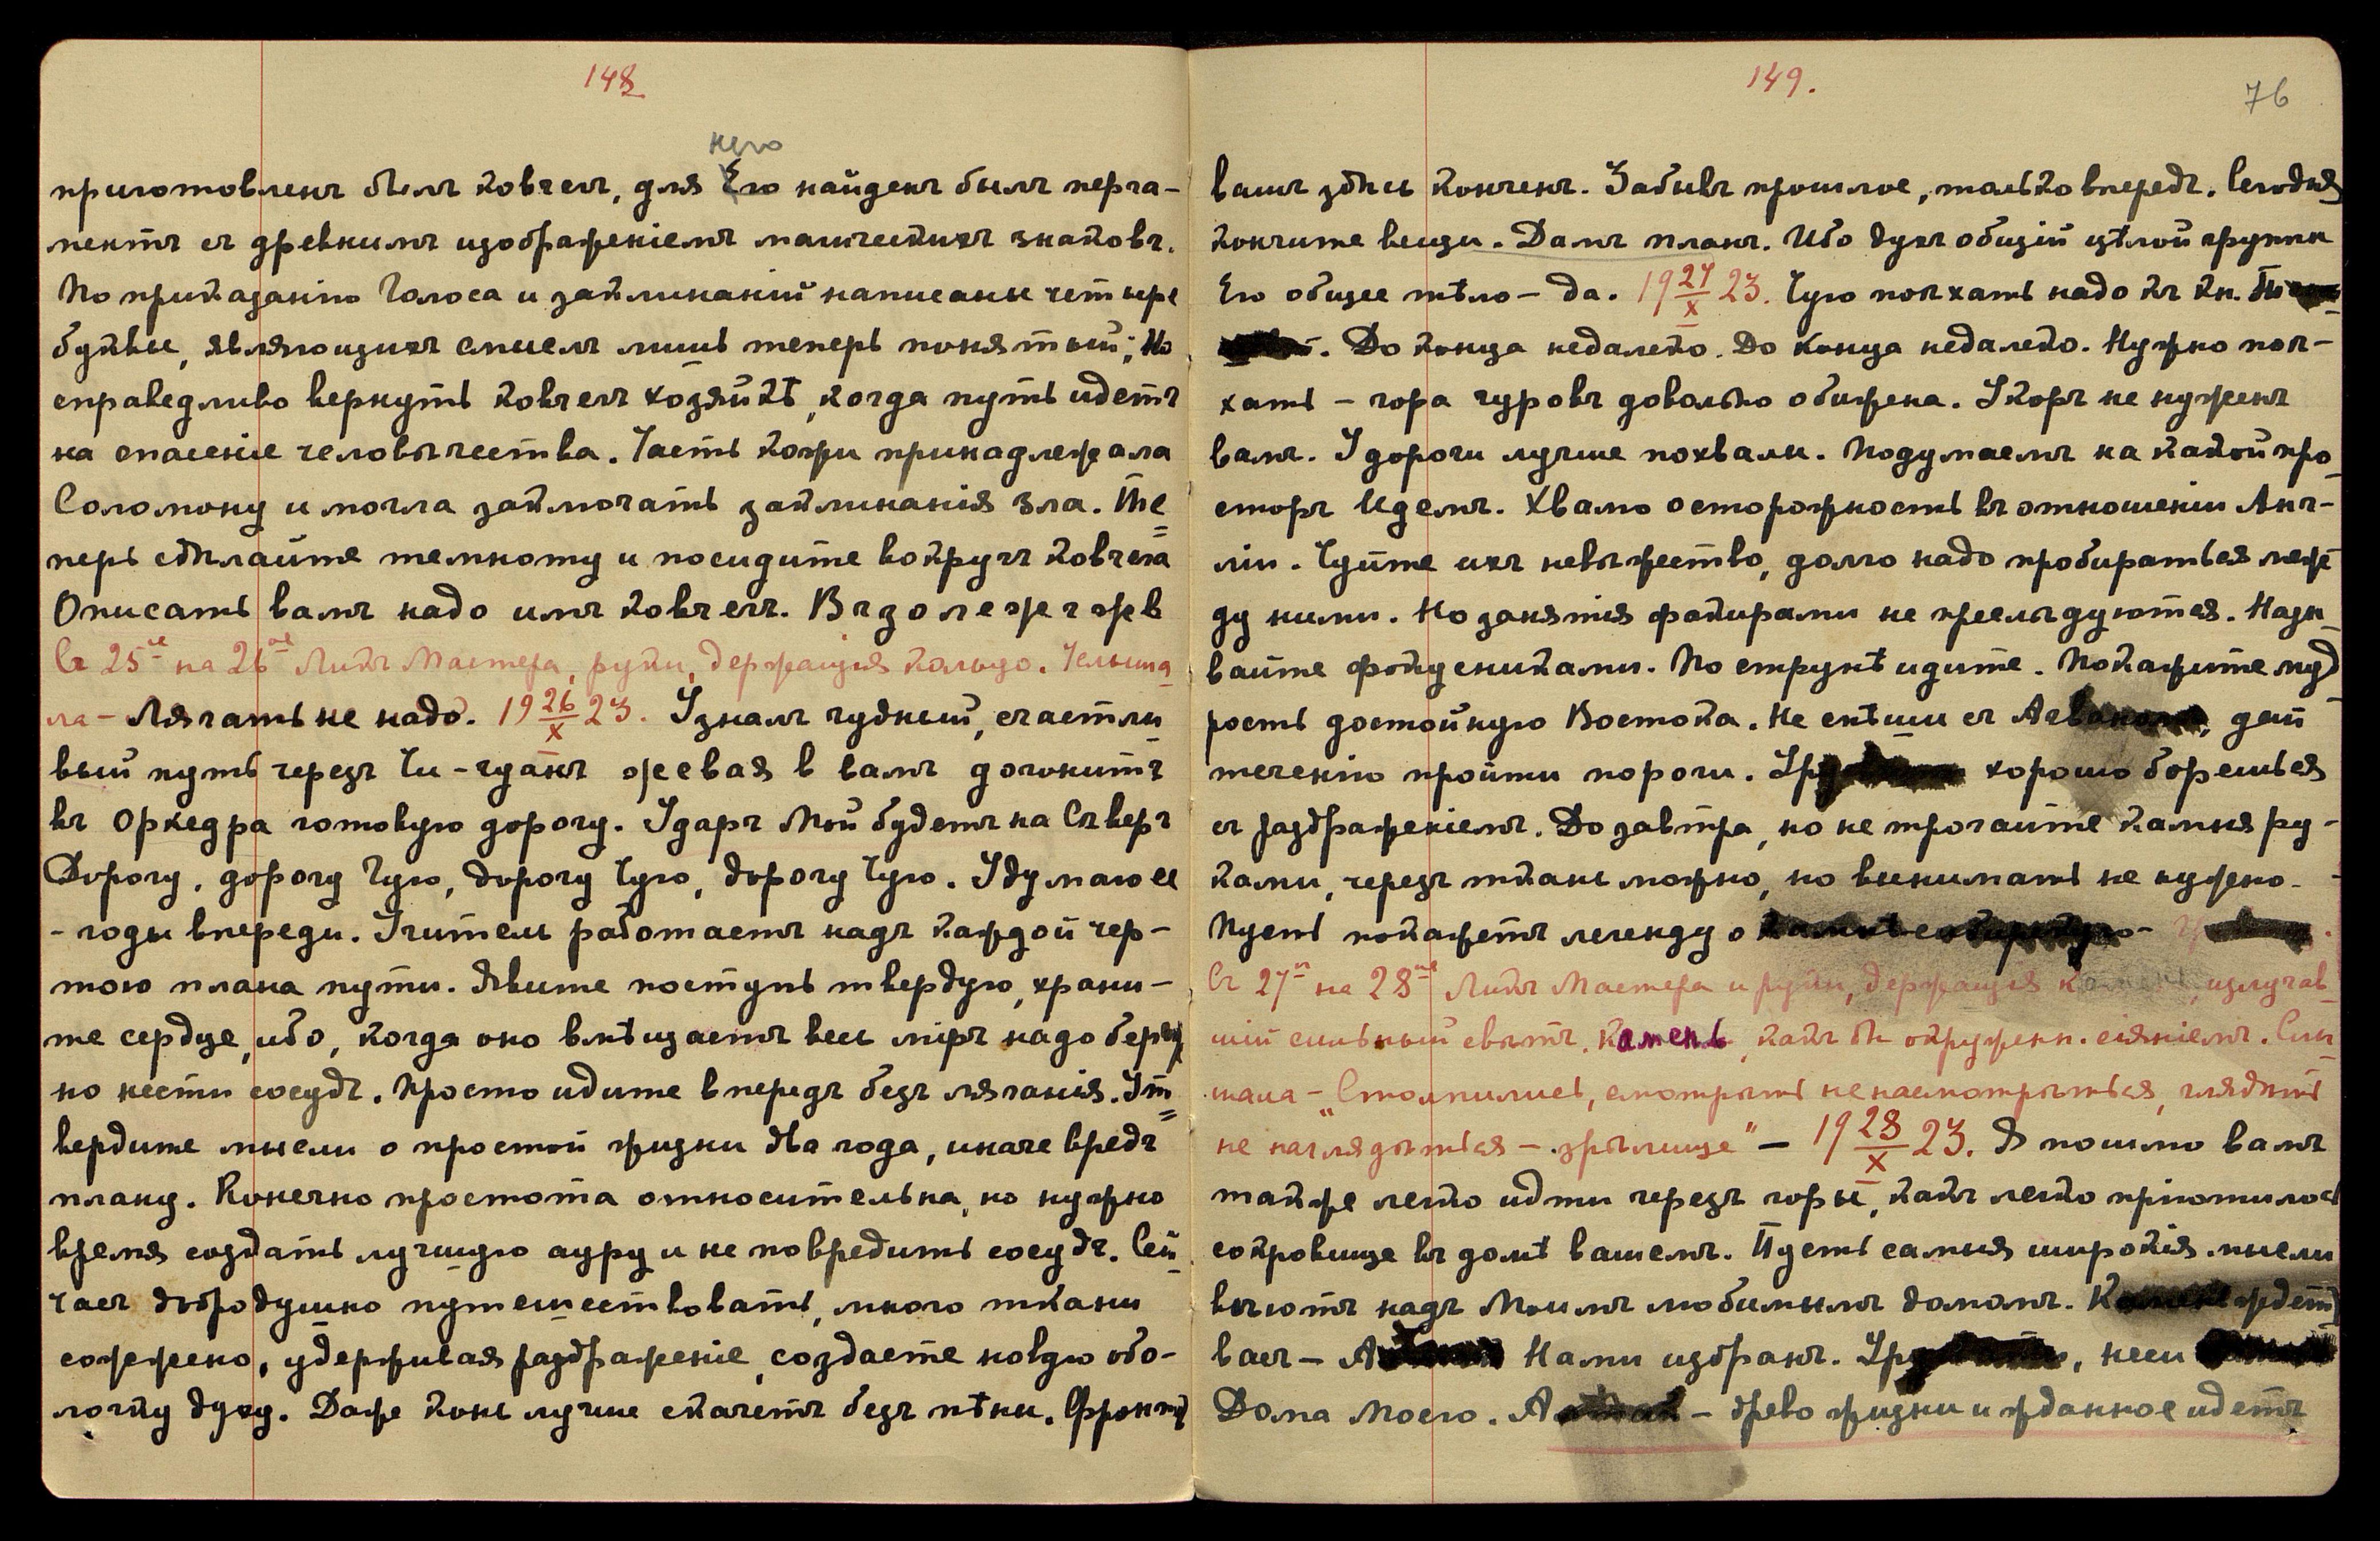 148
него
приготовленъ былъ ковчегъ, для Его найденъ былъ перга-
ментъ съ древнимъ изображеніемъ магическихъ знаковъ.
По приказанію Голоса и заклинаній написаны четыре
буквы, являющихъ смыслъ лишь теперь понятый; Но
справедливо вернуть ковчегъ хозяйкѣ, когда путь идетъ
на спасеніе человѣчества. Часть кожи принадлежала
Соломону и могла замыкать заклинанія зла. Те
перь сдѣлайте темноту и посидите вокругъ ковчега
Описать вамъ надо имъ ковчегъ.
Съ 25го на 26ое Ликъ Мастера, руки, держащія кольцо. Услыша
ла – Лягать не надо. 19 26/X 23. Узналъ чудный, счастли
вый путь черезъ вамъ догонитъ
въ готовую дорогу. Ударъ Мой будетъ на Сѣверъ
Дорогу, дорогу Чую, дорогу Чую, дорогу Чую. Удумаю ее
- годы впереди. Учитель работаетъ надъ каждой чер-
тою плана пути. Явите поступь твердую, храни-
те сердце, ибо, когда оно вмѣщаетъ весь міръ надо береж
но нести сосудъ. Просто идите впередъ безъ ляганія. Ут
вердите мысли о простой жизни на года, иначе вредъ
плану. Конечно простота относительна, но нужно
время создать лучшую ауру и не повредить сосудъ. Сей
часъ добродушно путешествовать, много ткани
сожжено, удерживая раздраженіе, создаете новую обо-
лочку духу. Даже конь лучше скачетъ безъ пѣны. Фронтъ
149.
76
вашъ здѣсь конченъ. Забывъ прошлое, только впередъ. Сегодня
кончите вещи. Дамъ планъ. Ибо духъ общій цѣлой группы
Его общее тѣло – да. 19 27/X 23. Чую поѣхать надо къ кн.
. До конца недалеко. До конца недалеко. Нужно поѣ-
хать – гора гуровъ довольно обижена. Укоръ не нуженъ
вамъ. У дороги лучше похвалы. Подумаемъ на какой про
сторъ Идемъ. Хвалю осторожность въ отношеніи Анг-
ліи. Чуйте ихъ невѣжество, долго надо пробираться меж
ду ними. Но занятія факирами не преслѣдуются. Назы
вайте По струнѣ идите. Покажите муд
рость достойную Востока. Не спѣши съ дай
теченію пройти пороги. хорошо борешься
съ раздраженіемъ. До завтра, но не трогайте камня ру-
ками, черезъ ткань можно, но вынимать не нужно.
Пусть покажетъ легенду о
Съ 27го на 28ое Ликъ Мастера и руки, держащія камень, излучав
шій сильный свѣтъ. Камень, какъ бы окруженн. сіяніемъ. Слы
шала – „Столпились, смотрѣть ненасмотрѣться, глядѣть
не наглядѣться – зрѣлище" – 19 28/X 23. Я пошлю вамъ
также легко идти черезъ горы, какъ легко пріютилось
сокровище въ домѣ вашемъ. Пусть самыя широкія мысли
вьются надъ Моимъ любимымъ домомъ. ждетъ
васъ – Нами избранъ. , неси
Дома Моего. – древо жизни и жданное идетъ